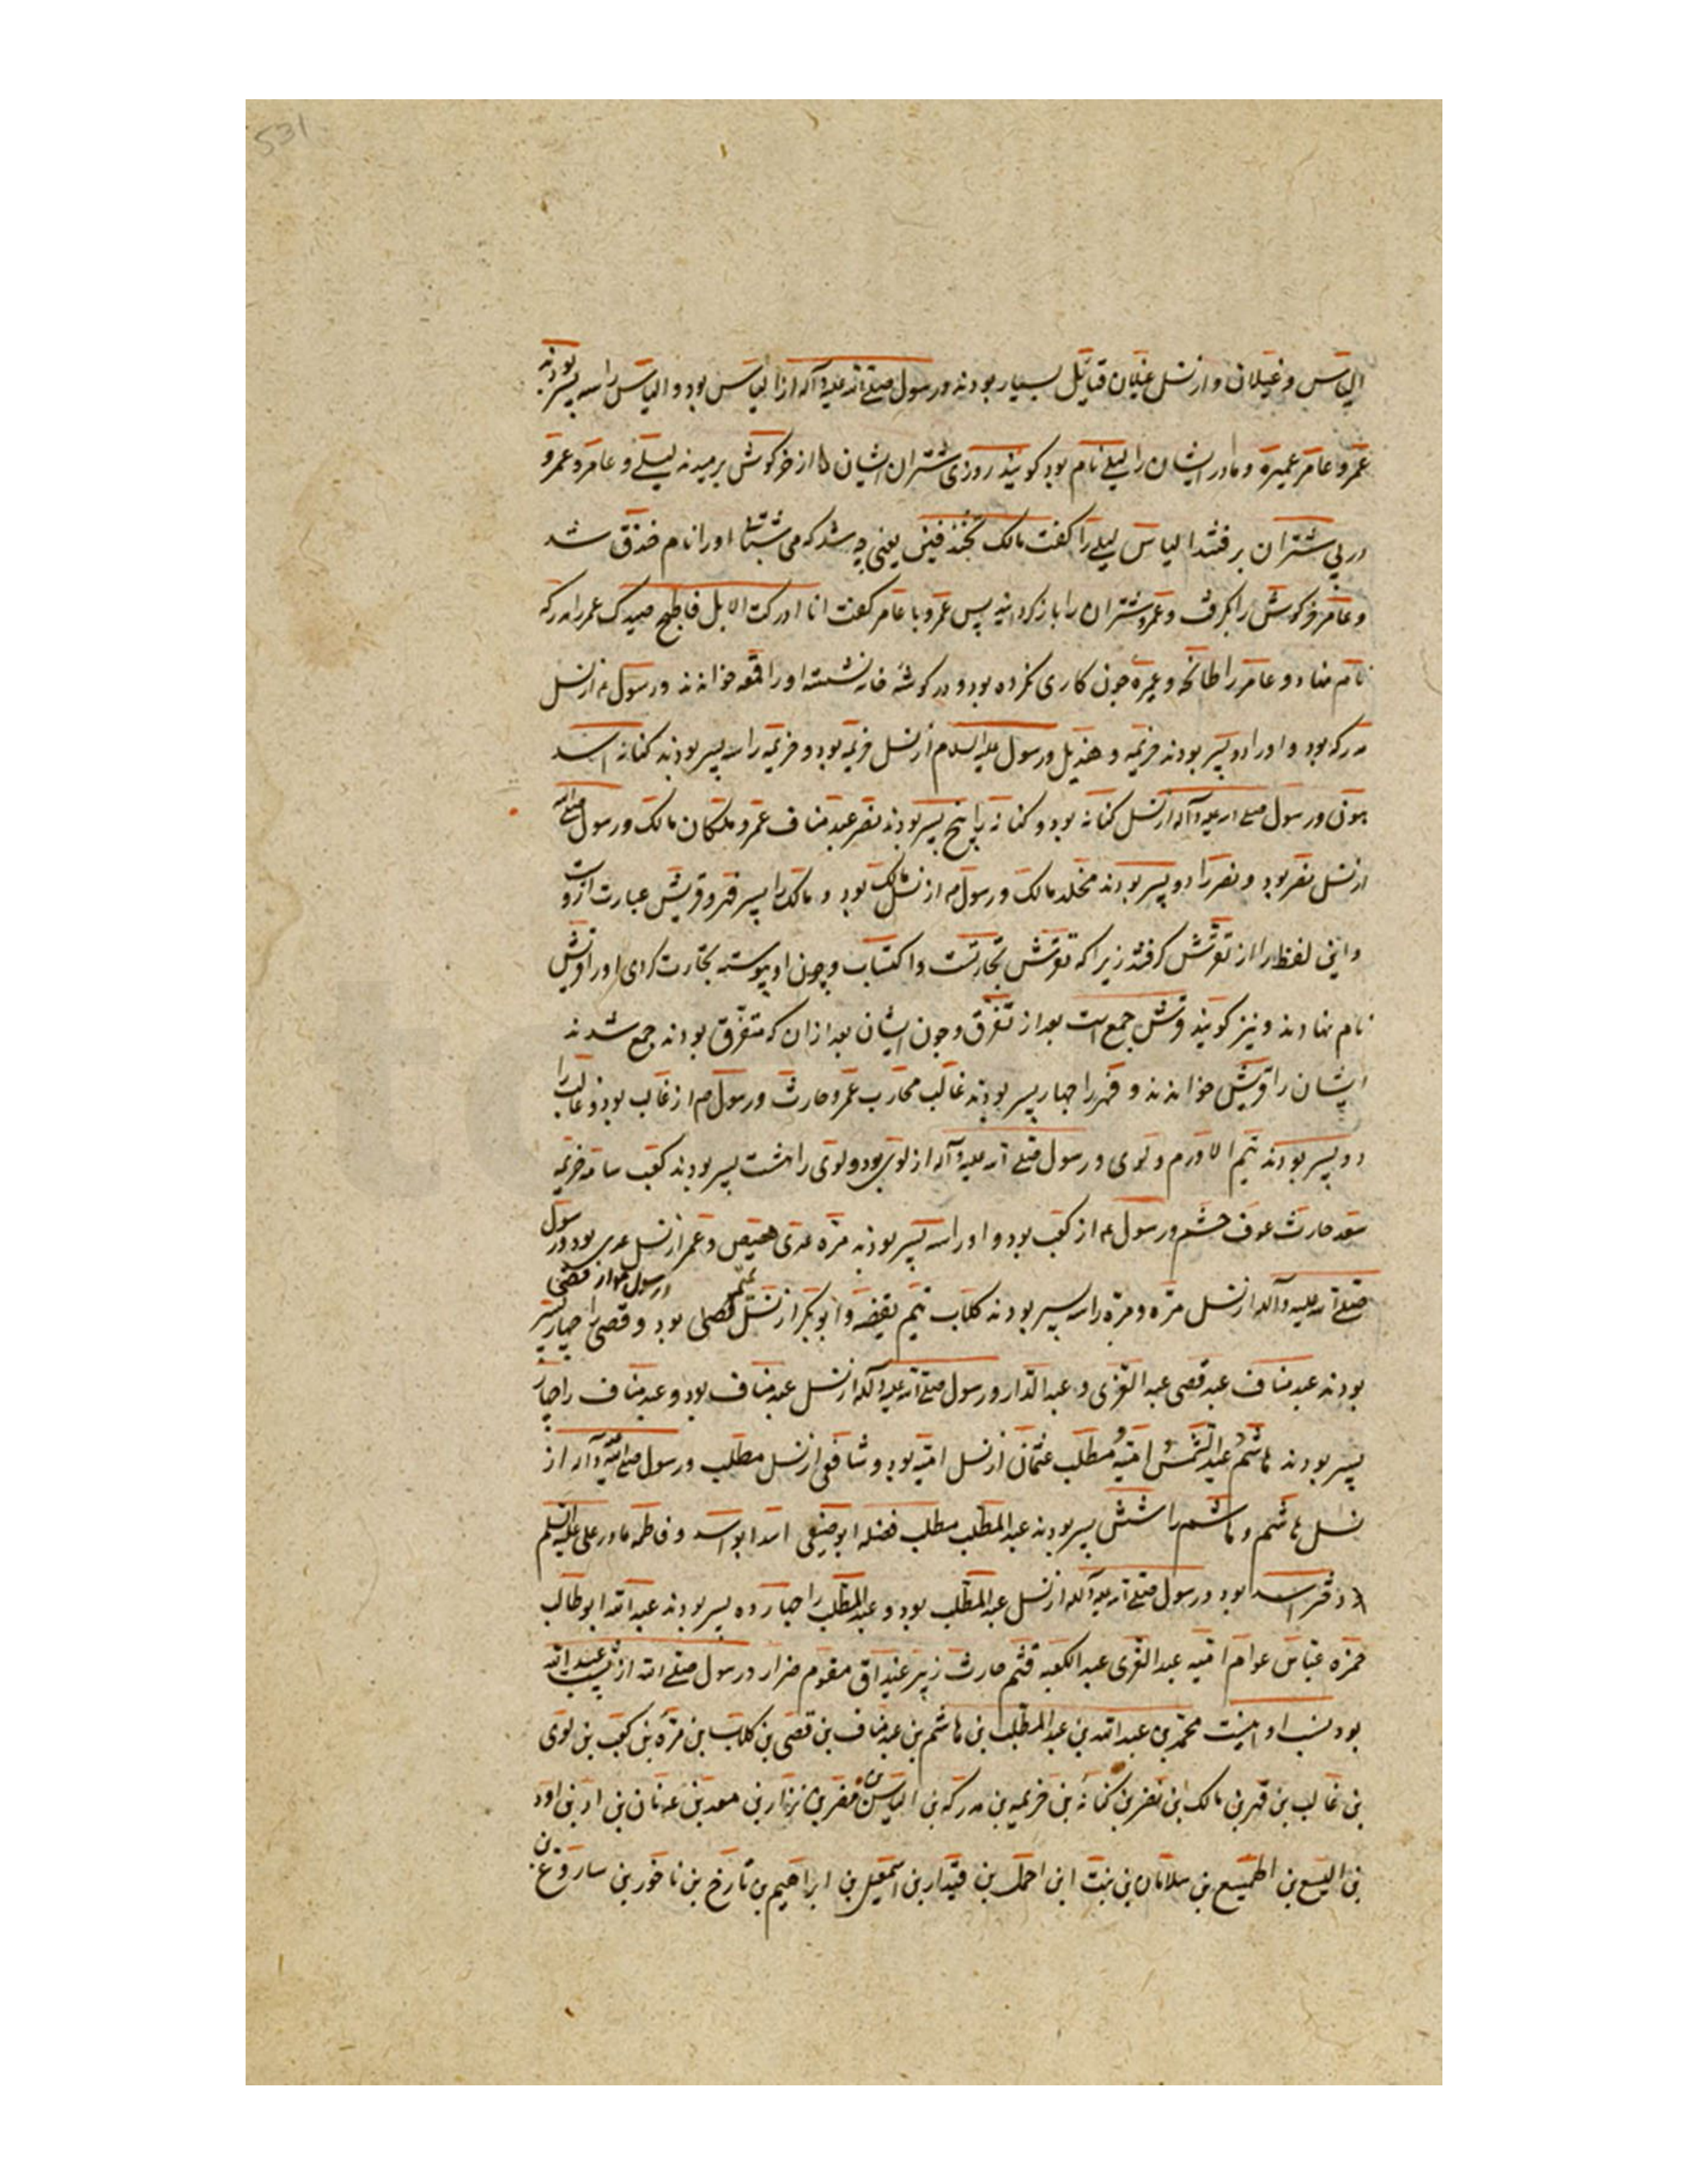 531
الیاس و غیلان و از نسل غیلان قبایل بسیار بودند و رسول صلی الله علیه و آله از الیاس بود و الیاس را سه پسر بودند
عمرو عامر عمیره و مادر ایشان را لیلی نام بود کویند روزی شتران ایشان از خرکوش برمیدند لیلی و عامر و عمرو
در پی شتران برفتند الیاس لیلی را کفت مالک تخندفین یعنی چه شد که می شتابی او را نام خندق شد
و عامر خرکوش را بکرفت و عمرو شتران را باز کردانید پس عمرو با عامر کفت انا ادرکت الابل فاطبخ صیدک عمر را مدرکه
نام نهاد و عامر را طابخه و عمیره چون کاری نکرده بود و در کوشه خانه نشسته او را قمعه خواندند و رسول م از نسل
مدرکه بود و او را دو پسر بودند خزیمه و هذیل و رسول علیه السلام از نسل خزیمه بود و خزیمه را سه پسر بودند کنانه اسد
هون و رسول صلی الله علیه و آله از نسل کنانه بود و کنانه را پنج پسر بودند نضر عبد مناف عمرو ملکان مالک و رسول صلی الله
از نسل نضر بود و نضر را دو پسر بودند مخلد مالک و رسول م از نسل مالک بود و مالک را پسر فهر و قریش عبارت از وست
و این لفظ را از تقرش کرفتند زیرا که تقرش تجارتست و اکتساب و چون او پیوسته تجارت کردی او را قریش
نام نهادند و نیز کویند قرش جمع است بعد از تفرق و چون ایشان بعد از ان که متفرق بودند جمع شدند
ایشان را قریش خواندند و فهر را چهار پسر بودند غالب محارب عمرو حارث و رسول م از غالب بود و غالب را
دو پسر بودند تیم الادرم و لوی و رسول صلی الله علیه و آله از لوی بود و لوی را هشت پسر بودند کعب سامه خزیمه
سعد حارث عوف جشم و رسول م از کعب بود و او را سه پسر بودند مره عدی هصیص و عمر از نسل عدی بود و رسول
صلی الله علیه و آله از نسل مره و مره را سه پسر بودند کلاب تیم یقظه و ابو بکر از نسل تیم قصی بود و رسول م از قصی و قصی را چهار پسر
بودند عبد مناف عبد قصی عبد العزی و عبد الدار و رسول صلی الله علیه و آله از نسل عبد مناف بود و عبد مناف را چهار
پسر بودند هاشم و عبد الشمس و امیه و مطلب عثمان از نسل امیه بود و شافعی از نسل مطلب و رسول صلی الله علیه و آله از
نسل هاشم و هاشم را شش پسر بودند عبد المطلب مطلب فضله ابو صیفی اسد ابو اسد و فاطمه مادر علی علیه السلم
دختر اسد بود و رسول صلی الله علیه و آله از نسل عبد المطلب بود و عبد المطلب را چهارده پسر بودند عبد الله ابو طالب
حمزه عباس عوام امیه عبد العزی عبد الکعبه قثم حارث زبیر غیداق مقوم ضرار و رسول صلی الله از نسل عبد الله
بود نسب او اینست محمد بن عبد الله بن عبد المطلب بن هاشم بن عبد مناف بن قصی بن کلاب بن مره بن کعب بن لوی
بن غالب بن فهر بن مالک بن نضر بن کنانه بن خزیمه بن مدرکه بن الیاس بن مضر بن نزار بن معد بن عدنان بن اد بن ادد
بن الیسع بن الهمیسع بن سلامان بن بنت ابن احمل بن قیدار بن اسمعیل بن ابراهیم بن تارخ بن ناخور بن ساروغ بن